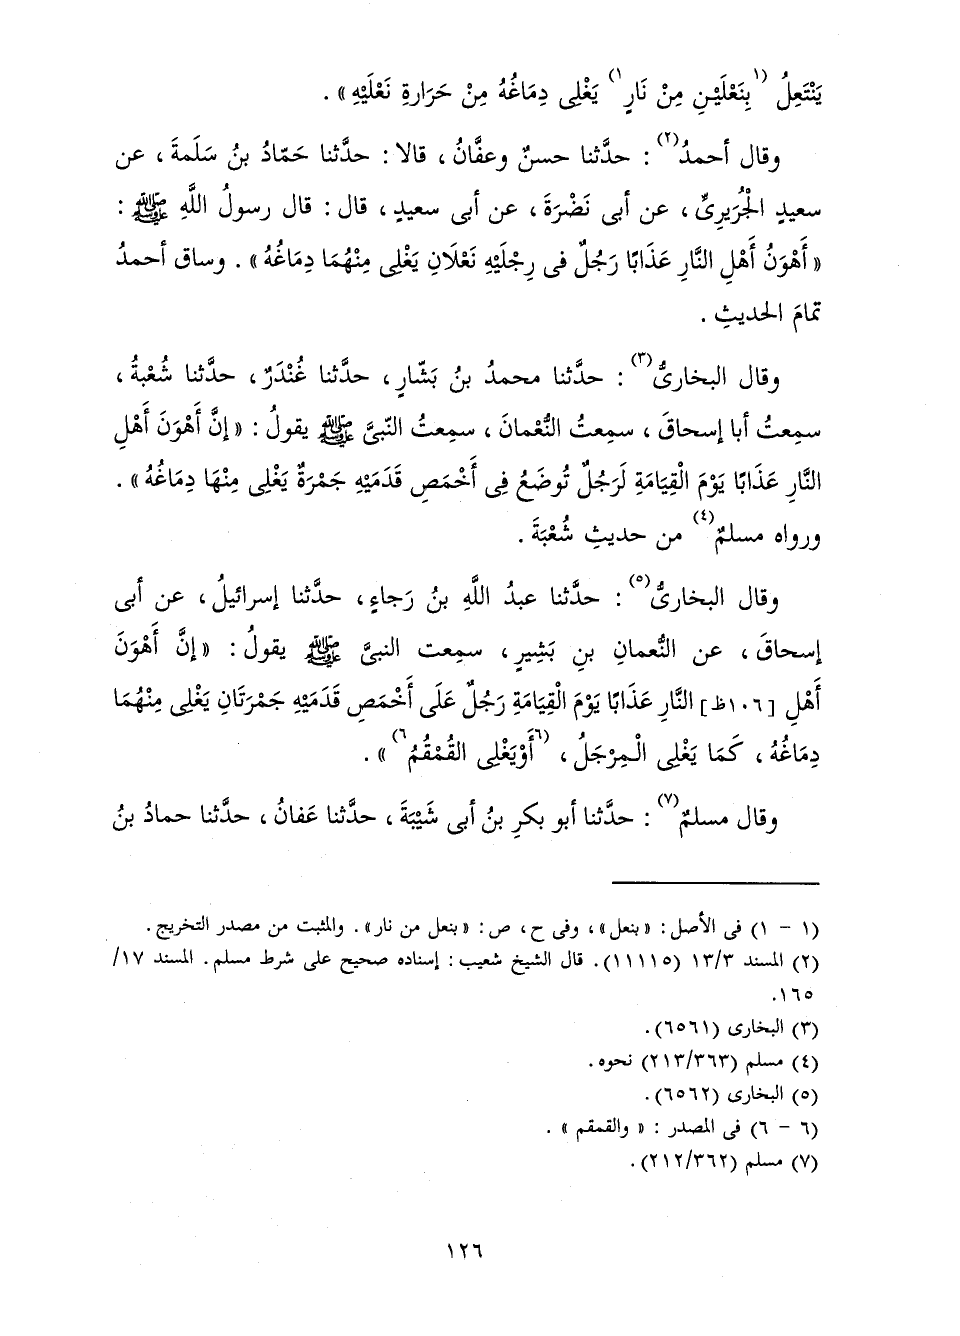 يَنْتَعِلُ (١) بِنَعْلَيْنِ مِنْ نَارٍ (١) يَغْلِى دِمَاغُهُ مِنْ حَرَارةِ نَعْلَيْهِ » .
وقال أحمدُ (٢) : حدَّثنا حسنٌ وعفَّانُ ، قالا : حدَّثنا حَمّادُ بنُ سَلَمةَ ، عن
سعيدٍ الجُرَيرِىِّ ، عن أبى نَضْرَةَ ، عن أبى سعيدٍ ، قال : قال رسولُ اللَّهِ ﷺ :
« أَهْوَنُ أَهْلِ النَّارِ عَذَابًا رَجُلٌ فى رِجْلَيْهِ نَعْلَانِ يَغْلِى مِنْهُمَا دِمَاغُهُ » . وساق أحمدُ
تمامَ الحديثِ .
وقال البخارىُّ (٣) : حدَّثنا محمدُ بنُ بَشّارٍ ، حدَّثنا غُنْدَرٌ ، حدَّثنا شُعْبةُ ،
سمِعتُ أبا إسحاقَ ، سمِعتُ النُّعْمانَ ، سمِعتُ النَّبىَّ ﷺ يقولُ : « إنَّ أَهْوَنَ أَهْلِ
النَّارِ عَذَابًا يَوْمَ الْقِيَامَةِ لَرَجُلٌ تُوضَعُ فِى أَخْمَصِ قَدَمَيْهِ جَمْرَةٌ يَغْلِى مِنْهَا دِمَاغُهُ » .
ورواه مسلمٌ (٤) من حديثِ شُعْبَةَ .
وقال البخارىُّ (٥) : حدَّثنا عبدُ اللَّهِ بنُ رَجاءٍ ، حدَّثنا إسرائيلُ ، عن أبى
إسحاقَ ، عن النُّعمانِ بنِ بَشِيرٍ ، سمِعت النبىَّ ﷺ يقولُ : « إنَّ أَهْوَنَ
أَهْلِ [ ١٠٦ظ ] النَّارِ عَذَابًا يَوْمَ الْقِيَامَةِ رَجُلٌ عَلَى أَخْمَصِ قَدَمَيْهِ جَمْرَتَانِ يَغْلِى مِنْهُمَا
دِمَاغُهُ ، كَمَا يَغْلِى الْمِرْجَلُ ، (٦) أَوْيَغْلِى القُمْقُمُ (٦) » .
وقال مسلمٌ (٧) : حدَّثنا أبو بكرِ بنُ أبى شَيْبَةَ ، حدَّثنا عَفانُ ، حدَّثنا حمادُ بنُ
(١ - ١) فى الأصل : « بنعل » ، وفى ح ، ص : « بنعل من نار » . والمثبت من مصدر التخريج .
(٢) المسند ١٣/٣ (١١١١٥) . قال الشيخ شعيب : إسناده صحيح على شرط مسلم . المسند ١٧/
١٦٥ .
(٣) البخارى (٦٥٦١) .
(٤) مسلم (٢١٣/٣٦٣) نحوه .
(٥) البخارى (٦٥٦٢) .
(٦ - ٦) فى المصدر : « والقمقم » .
(٧) مسلم (٢١٢/٣٦٢) .
١٢٦